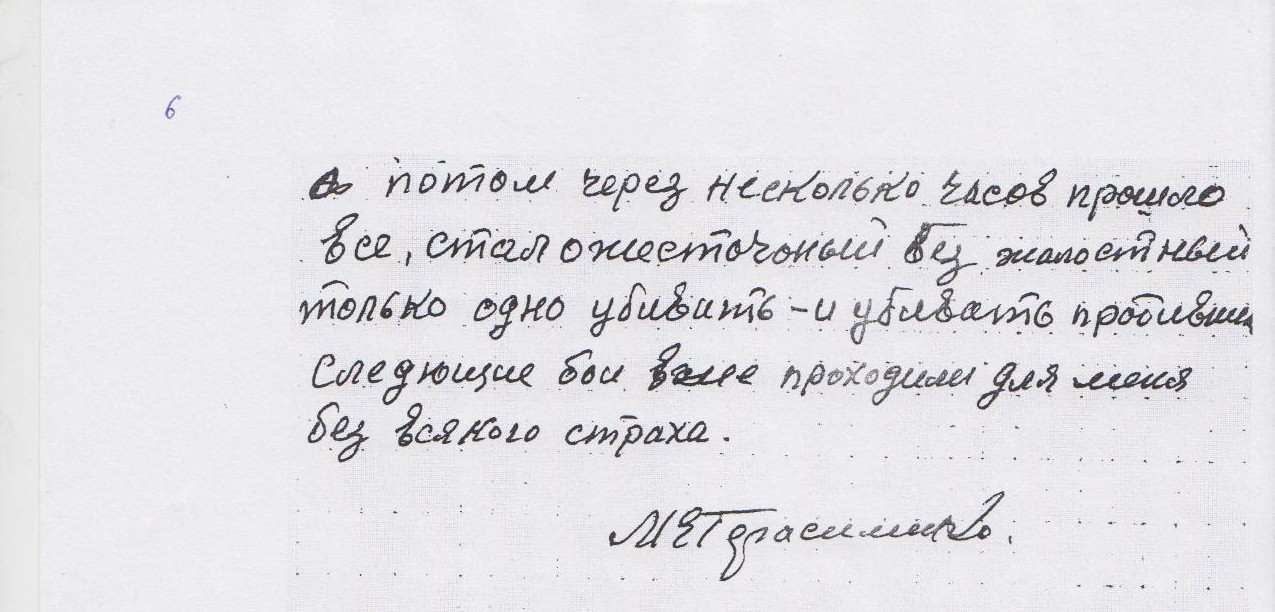 6
а потом через несколько часов прошло
все, стал ожесточоный без жалостный
только одно убивить - и убивать
следующие бои проходили для меня
без всякого страха.
МЕГерасименко.